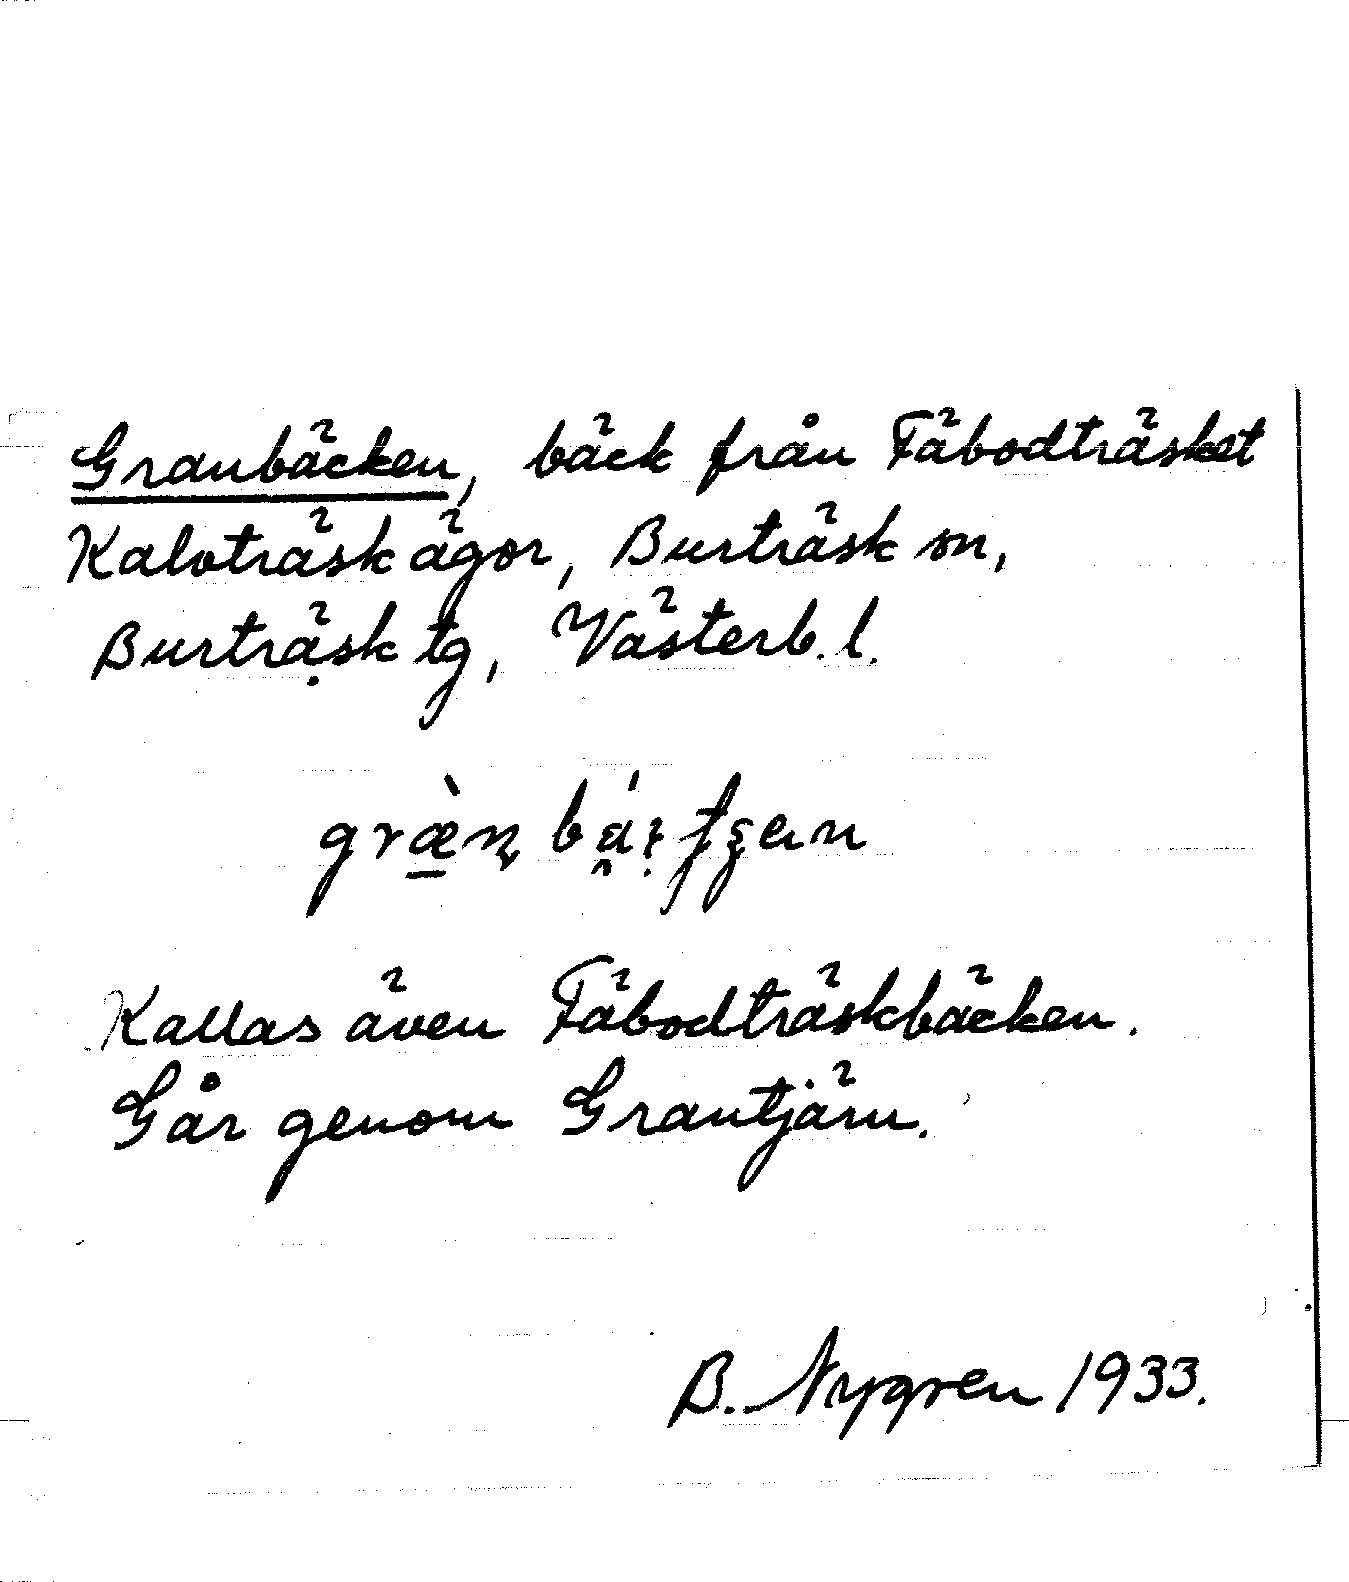 Granbäcken, bäck från Fäbodträsket
Kalvträsk ägor, Burträsk sn,
Burträsk tg, Västerb. l.
Kallas även Fäbodträskbäcken.
Går genom Grantjärn.
B. Nygren 1933.